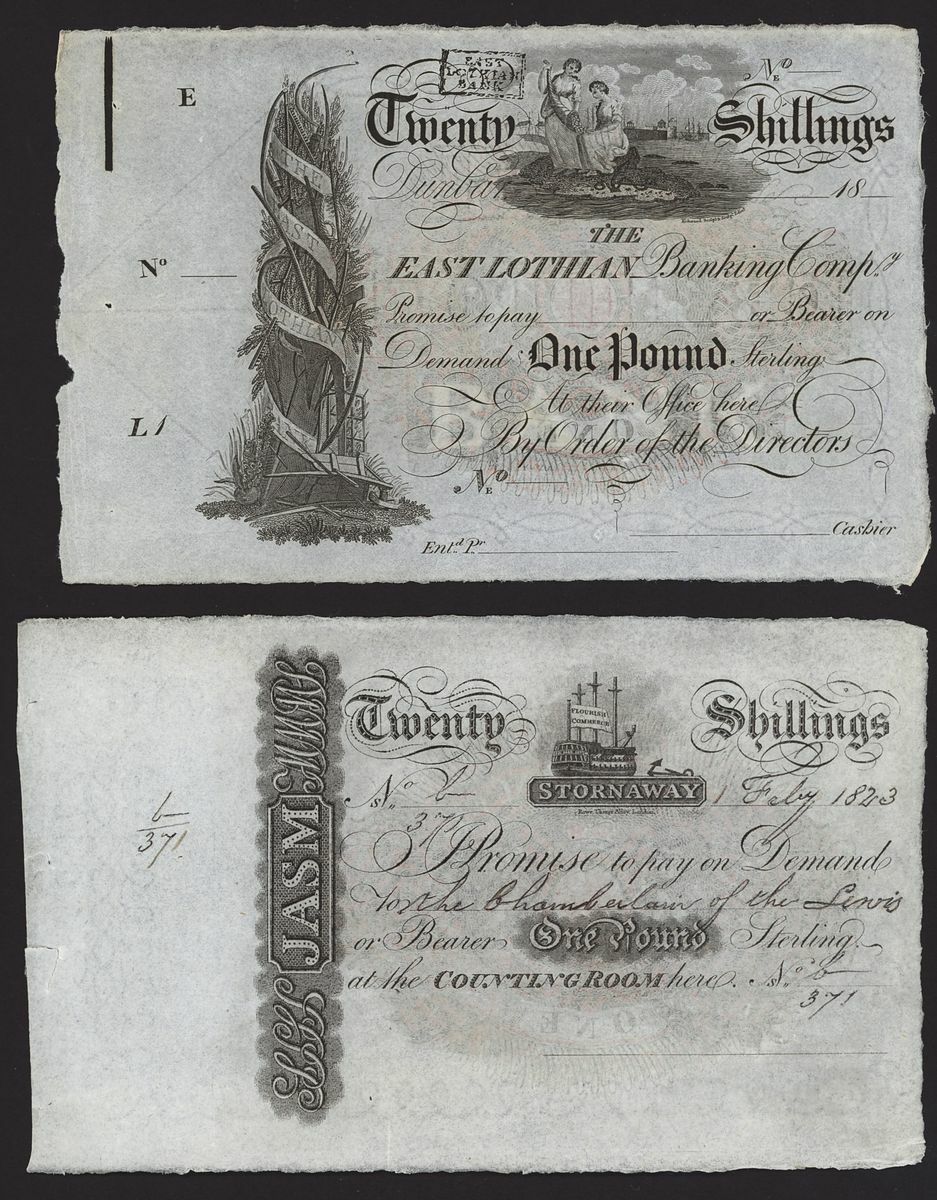 EAST
LOTHIAN
BANK
E
No
Twenty Shillings
Dunbar 18
THE
EAST LOTHIAN Banking Compy
No
Promise to pay or Bearer on
Demand One Pound Sterling
At their Office here
L1
By Order of the Directors
No
Cashier
Entd Pr
THE
EAST
LOTHIAN
Twenty Shillings
FLOURISH
COMMERCE
STORNAWAY
No b/371 1 Feby 1823
I Promise to pay on Demand
to the Chamberlain of the Lewis
or Bearer One Pound Sterling
at the COUNTING ROOM here. No b/371
b/371
JASM